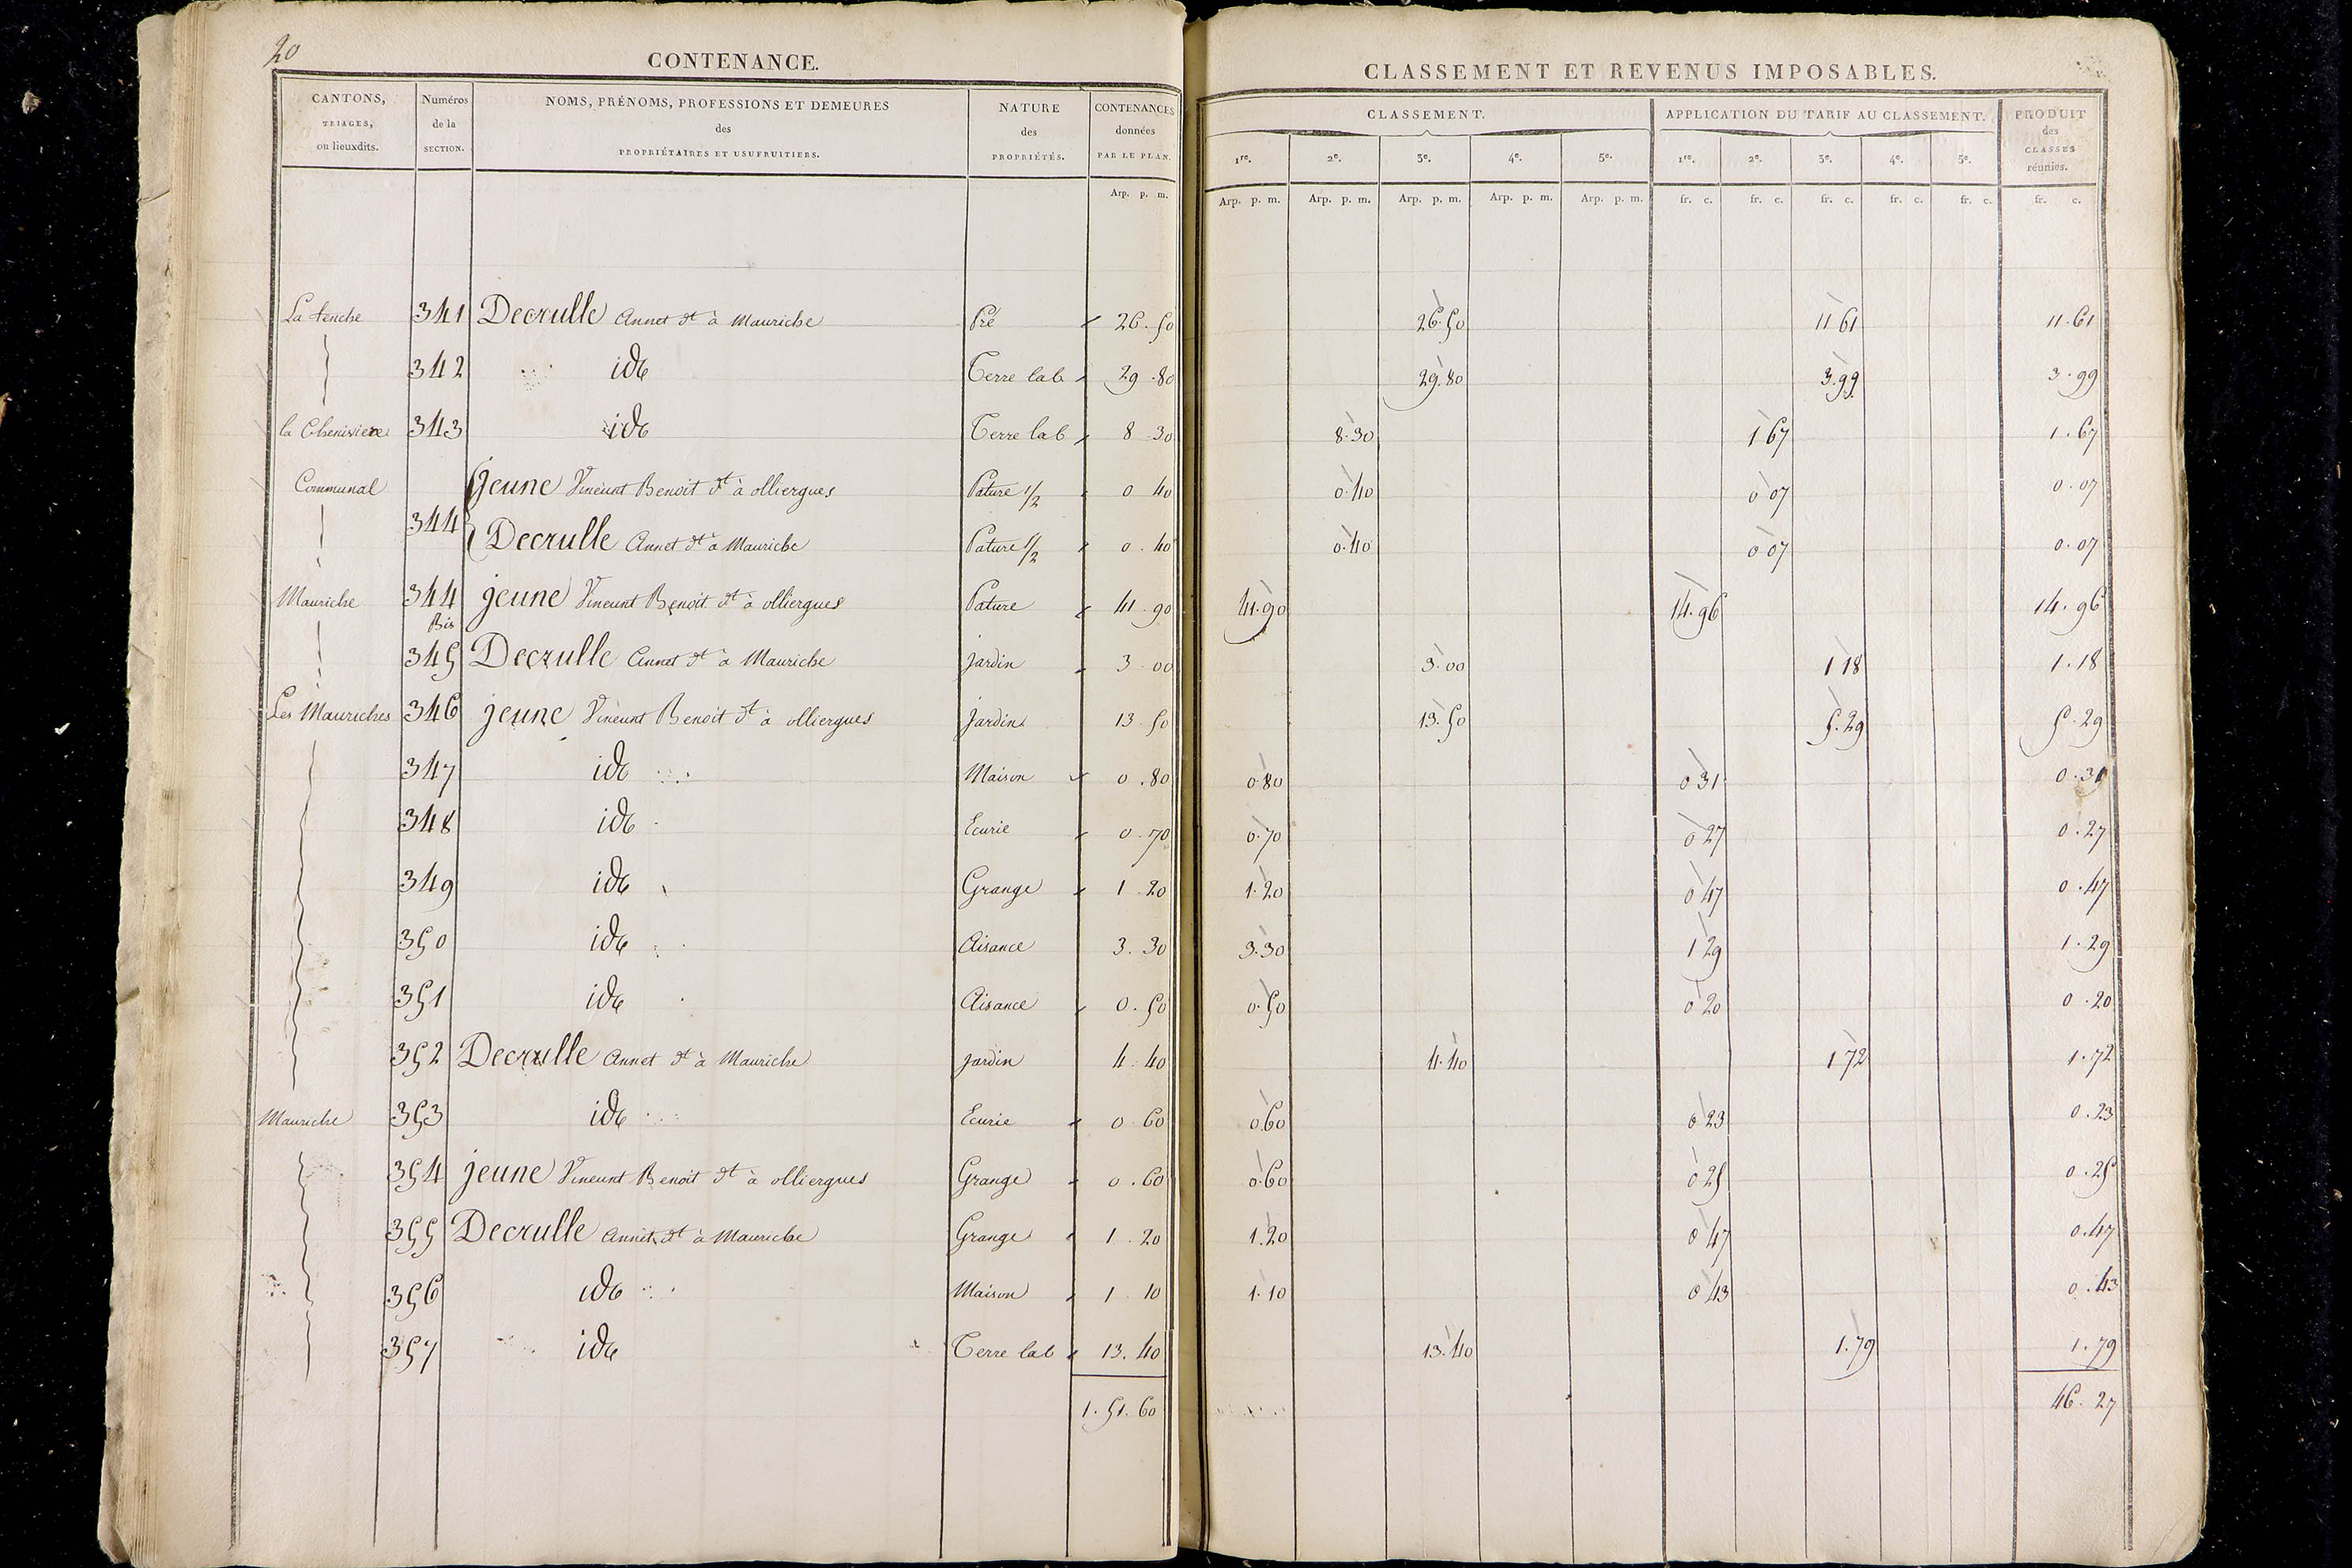 20
CONTENANCE.
CLASSEMENT ET REVENUS IMPOSABLES.
CANTONS, TRIAGES, ou lieuxdits. Numéros de la SECTION. NOMS, PRÉNOMS, PROFESSIONS ET DEMEURES des PROPRIÉTAIRES ET USUFRUITIERS. NATURE des PROPRIÉTÉS. CONTENANCES données PAR LE PLAN. CLASSEMENT. APPLICATION DU TARIF AU CLASSEMENT. PRODUIT des CLASSES réunies.
1re. 2e. 3e. 4e. 5e. 1re. 2e. 3e. 4e. 5e.
Arp. p. m. Arp. p. m. Arp. p. m. Arp. p. m. Arp. p. m. Arp. p. m. fr. c. fr. c. fr. c. fr. c. fr. c. fr. c.
La tenche 341 Decrulle Annet dt à Mauriche Pré 26.50 26.50 11 61 11.61
342 ide Terre lab 29.80 29.80 3.99 3.99
la Cheniviere 343 ide Terre lab 8 30 8.30 1 67 1.67
Communal jeune Vincent Benoit dt à olliergues Pature 1/2 0 40 0.40 0 07 0.07
344 Decrulle Annet dt à Mauriche Pature 1/2 0.40 0.40 0 07 0.07
Mauriche 344 Bis jeune Vincent Benoit dt à olliergues Pature 41.90 41.90 14.96 14.96
345 Decrulle Annet dt à Mauriche jardin 3 00 3.00 1 18 1.18
Les Mauriches 346 jeune Vincent Benoit dt à olliergues jardin 13 50 13.50 5.29 5.29
347 ide Maison 0.80 0.80 0 31 0.31
348 ide Ecurie 0.70 0.70 0 27 0.27
349 ide Grange 1 20 1.20 0 47 0.47
350 ide Aisance 3.30 3.30 1 29 1.29
351 ide Aisance 0.50 0.50 0 20 0.20
352 Decrulle Annet dt à Mauriche jardin 4 40 4.40 1 72 1.72
Mauriche 353 ide Ecurie 0 60 0.60 0 23 0.23
354 jeune Vincent Benoit dt à olliergues Grange 0.60 0.60 0 25 0.25
355 Decrulle Annet dt à Mauriche Grange 1.20 1.20 0 47 0.47
356 ide Maison 1 10 1.10 0 43 0.43
357 ide Terre lab 13.40 13.40 1.79 1.79
1.51.60 46.27